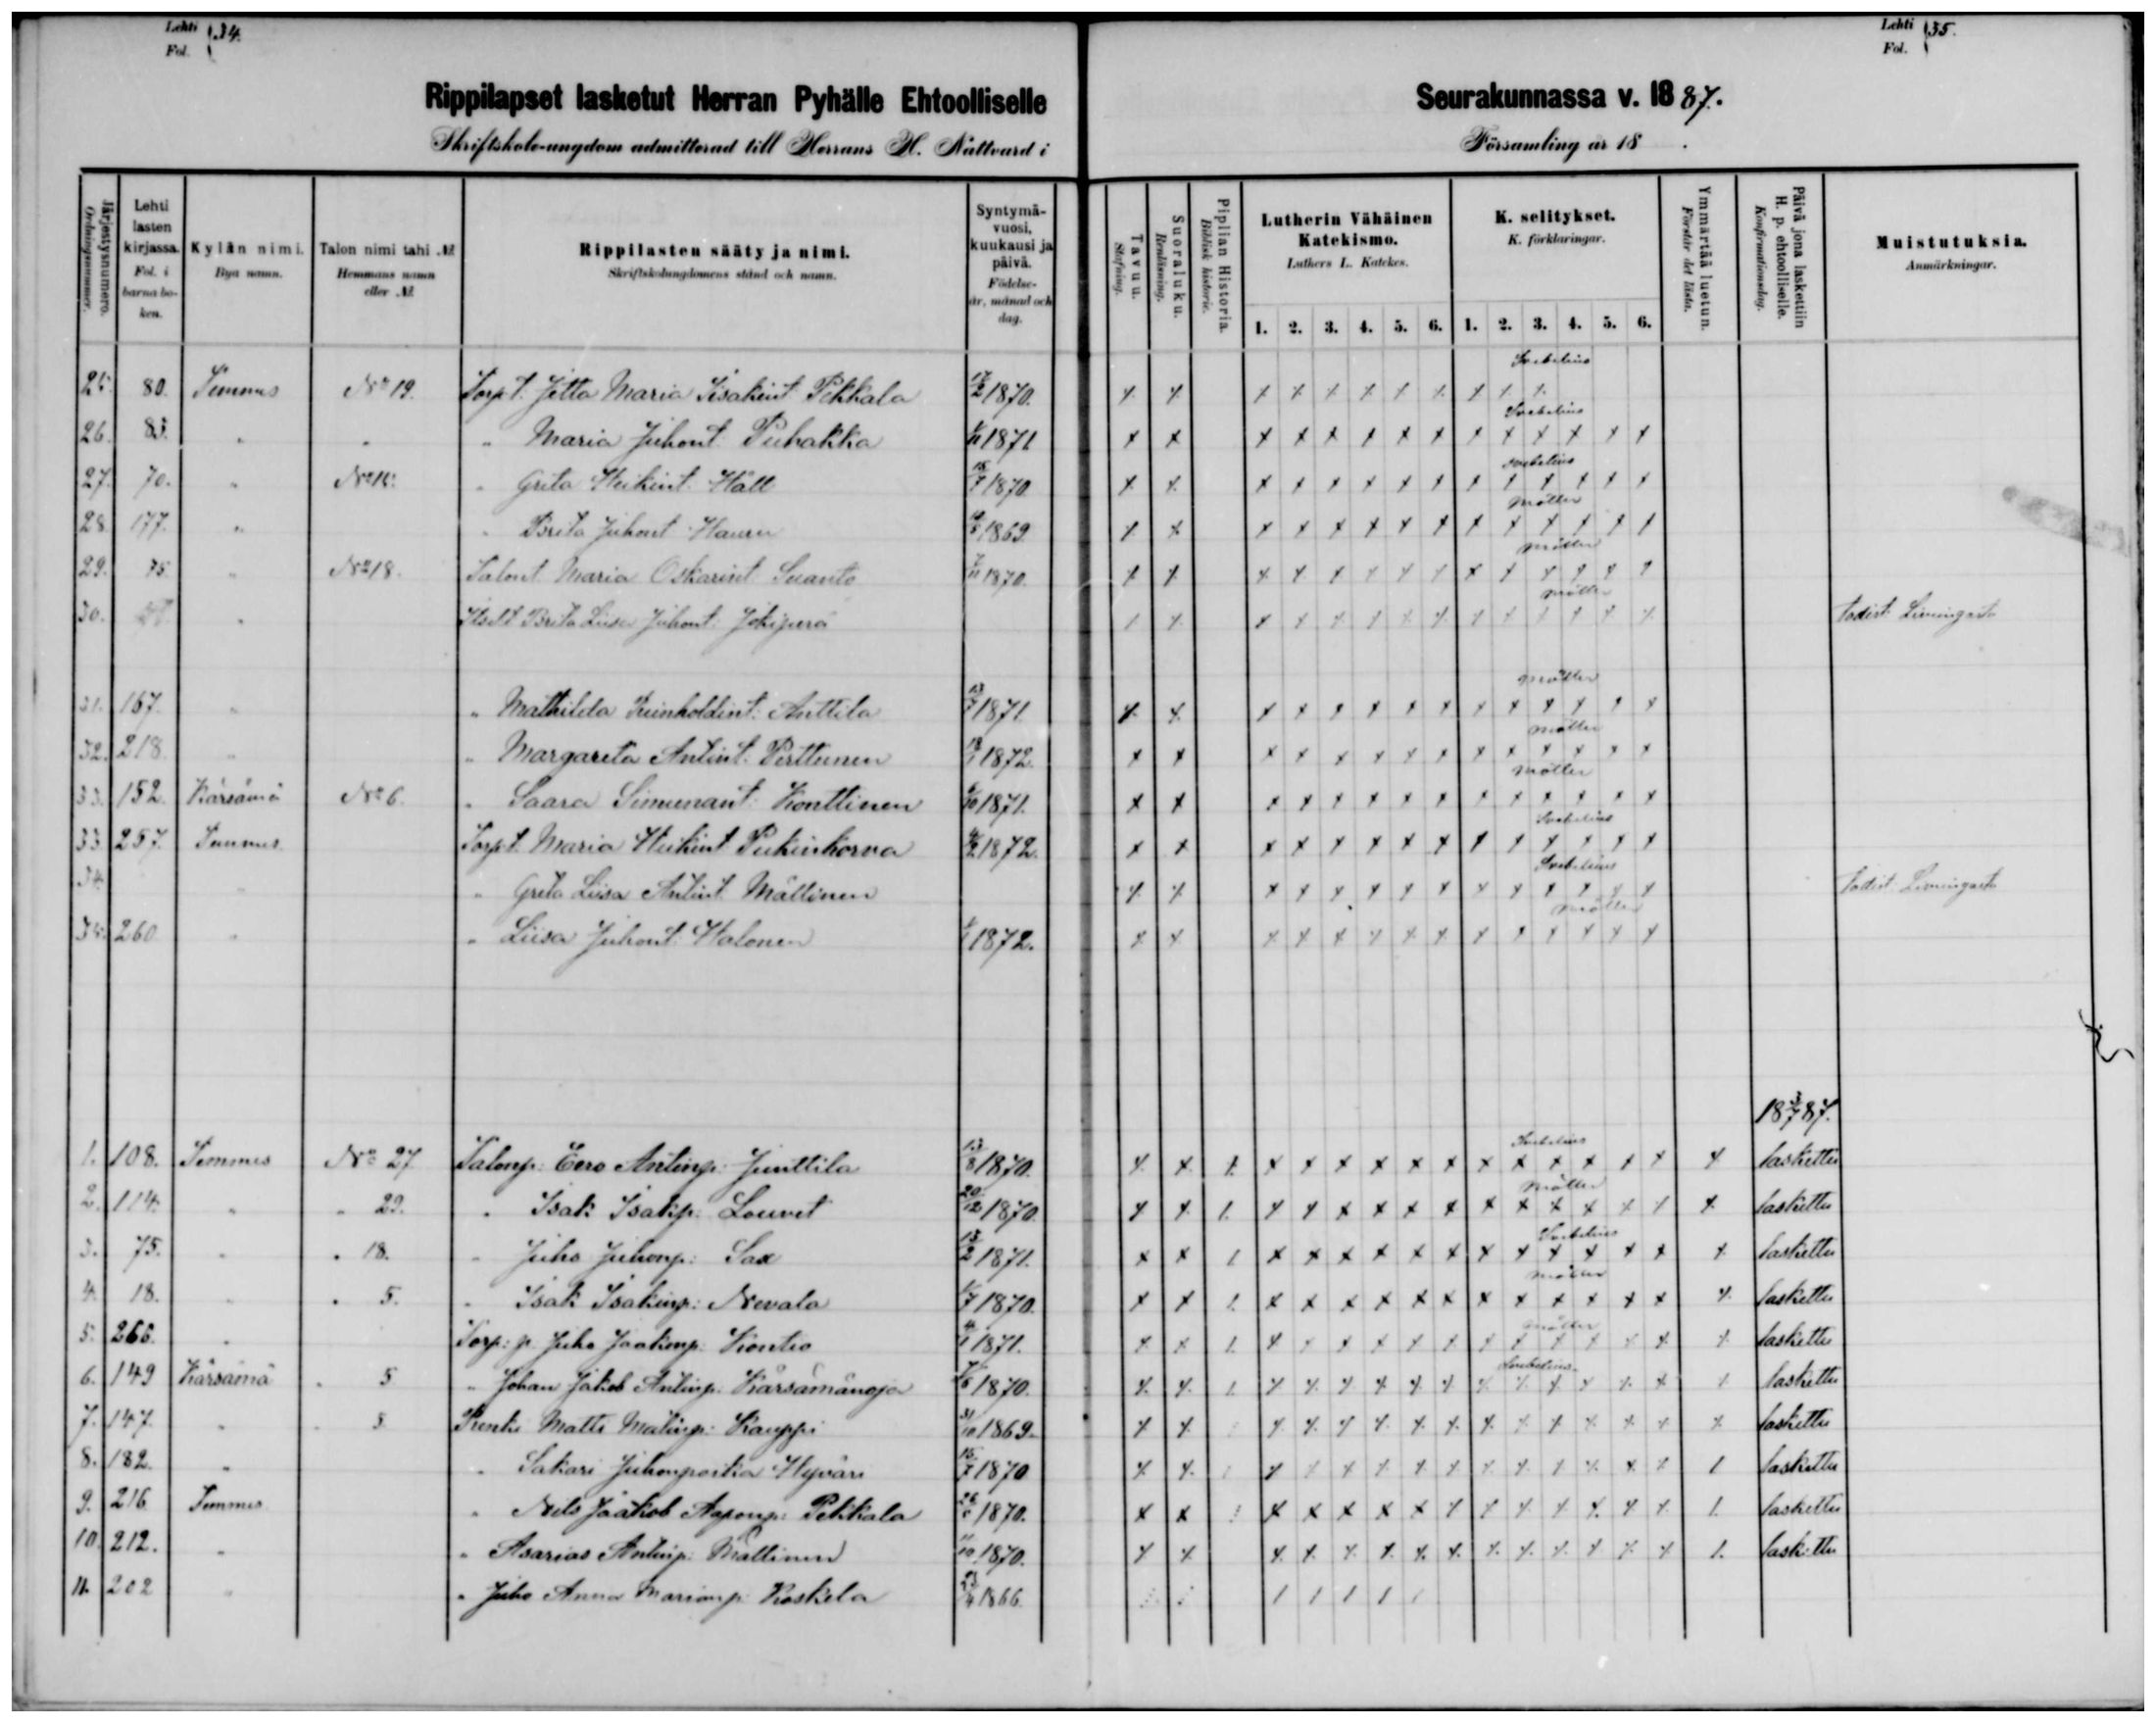 Lehti 34.
Fol.
Lehti 35.
Fol.
Rippilapset lasketut Herran Pyhälle Ehtoolliselle Seurakunnassa v. 1887.
Skriftskole-ungdom admitterad till Herrans H. Nattvard i Församling år 18 .
Järjestysnumero. Ordningsnummer.
Lehti lasten kirjassa. Fol. i barna boken.
Kylän nimi. Bya namn.
Talon nimi tahi № Hemmans namn eller №
Rippilasten sääty ja nimi. Skriftskolungdomens stånd och namn.
Syntymävuosi, kuukausi ja päivä. Födelseår, månad och dag.
Tavuu. Stafning.
Suoraluku. Renläsning.
Piplian Historia. Biblisk historie.
Lutherin Vähäinen Katekismo. Luthers L. Katekes.
1. 2. 3. 4. 5. 6.
K. selitykset. K. förklaringar.
1. 2. 3. 4. 5. 6.
Ymmärtää luetun. Förstår det lästa.
Päivä jona laskettiin H. p. ehtoolliselle. Konfirmationsdag.
Muistutuksia. Anmärkningar.
Svebelius
25. 80. Temmes No 19. Torp.t. Jetta Maria Iisakint Pekkala 17/2 1870. x x x x x x x x x x x
Svebelius
26. 83. " " " Maria Juhont Puhakka 1871 x x x x x x x x x x x x x x
Svebelius
27. 70. " " Greta Heikint. Häll 1870 x x x x x x x x x x x x x x
Möller
28. 177. " " Brita Juhont 1869 x x x x x x x x x x x x x x
Möller
29. 75. " No 18. Talont. Maria Oskarint. 1870. x x x x x x x x x x x x x x
Möller
30. " Brita Liisa Juhont: x x x x x x x x x x x x x Todist. Limingasta
Möller
31. 167. " " Mathilda Reinholdint: Anttila 13/7 1871. x x x x x x x x x x x x x x
Möller
32. 218. " " Margareta Antint: Perttunen 1872. x x x x x x x x x x x x x x
Möller
33. 152. Kärsämä No 6. " Saara Simunant: Konttinen 1871. x x x x x x x x x x x x x x
Svebelius
33. 257. Temmes Torp.t. Maria Heikint 1872. x x x x x x x x x x x x x x
Svebelius
34. " " Greta Liisa Antint. Mällinen x x x x x x x x x x x x x x Todist. Limingasta
Möller
260 " " Liisa Juhont: Halonen 1872. x x x x x x x x x x x x x x
18 3/7 87.
Svebelius
1. 108. Temmes No 27 Talonp: Eero Antinp: Junttila 13/8 1870. x x x x x x x x x x x x x x x x laskettu
Möller
2. 114. " " 29. " Isak Isakp: Louvet 20/12 1870. x x x x x x x x x x x x x x x x laskettu
Svebelius
3. 75. " " 18. " Juho Juhonp: Sax 1871. x x x x x x x x x x x x x x x laskettu
Möller
4. 18. " " 5. " Isak Isakinp: Nevala 1870. x x x x x x x x x x x x x x x laskettu
Möller
5. 266. " Torp: p. Juho Jaakonp: Kontio 1871. x x x x x x x x x x x x x x x laskettu
Svebelius
6. 149 Kärsämä " 5 " Johan Jakob Antinp: Kärsämänoja 1870. x x x x x x x x x x x x x x x laskettu
7. 147. " " 5 Renki Matti Matinp: Kauppi 31/10 1869. x x x x x x x x x x x x x x x laskettu
8. 182. " " Sakari Juhonpoika Hyväri 1870 x x x x x x x x x x x x x x x laskettu
9. 216 Temmes " Nils Jaakob Aaponp: Pekkala 1870. x x x x x x x x x x x x x x x laskettu
10. 212. " " Asarias Antinp: Mällinen 1870. x x x x x x x x x x x x x x x laskettu
11. 202 " " Juho Anna Marianp: Koskela 1866.